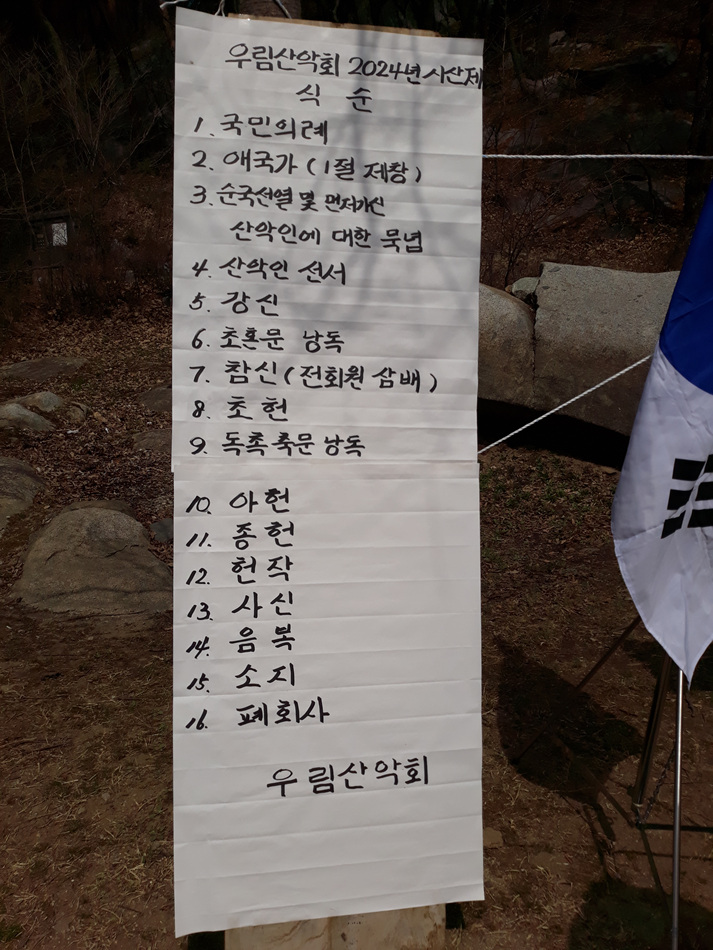 우림산악회 2024년 시산제
식 순
1. 국민의례
2. 애국가 (1절 제창)
3. 순국선열 및 먼저가신
산악인에 대한 묵념
4. 산악인 선서
5. 강신
6. 초혼문 낭독
7. 참신 (전회원 삼배)
8. 초헌
9. 독축축문 낭독
10. 아헌
11. 종헌
12. 헌작
13. 사신
14. 음복
15. 소지
16. 폐회사
우림산악회